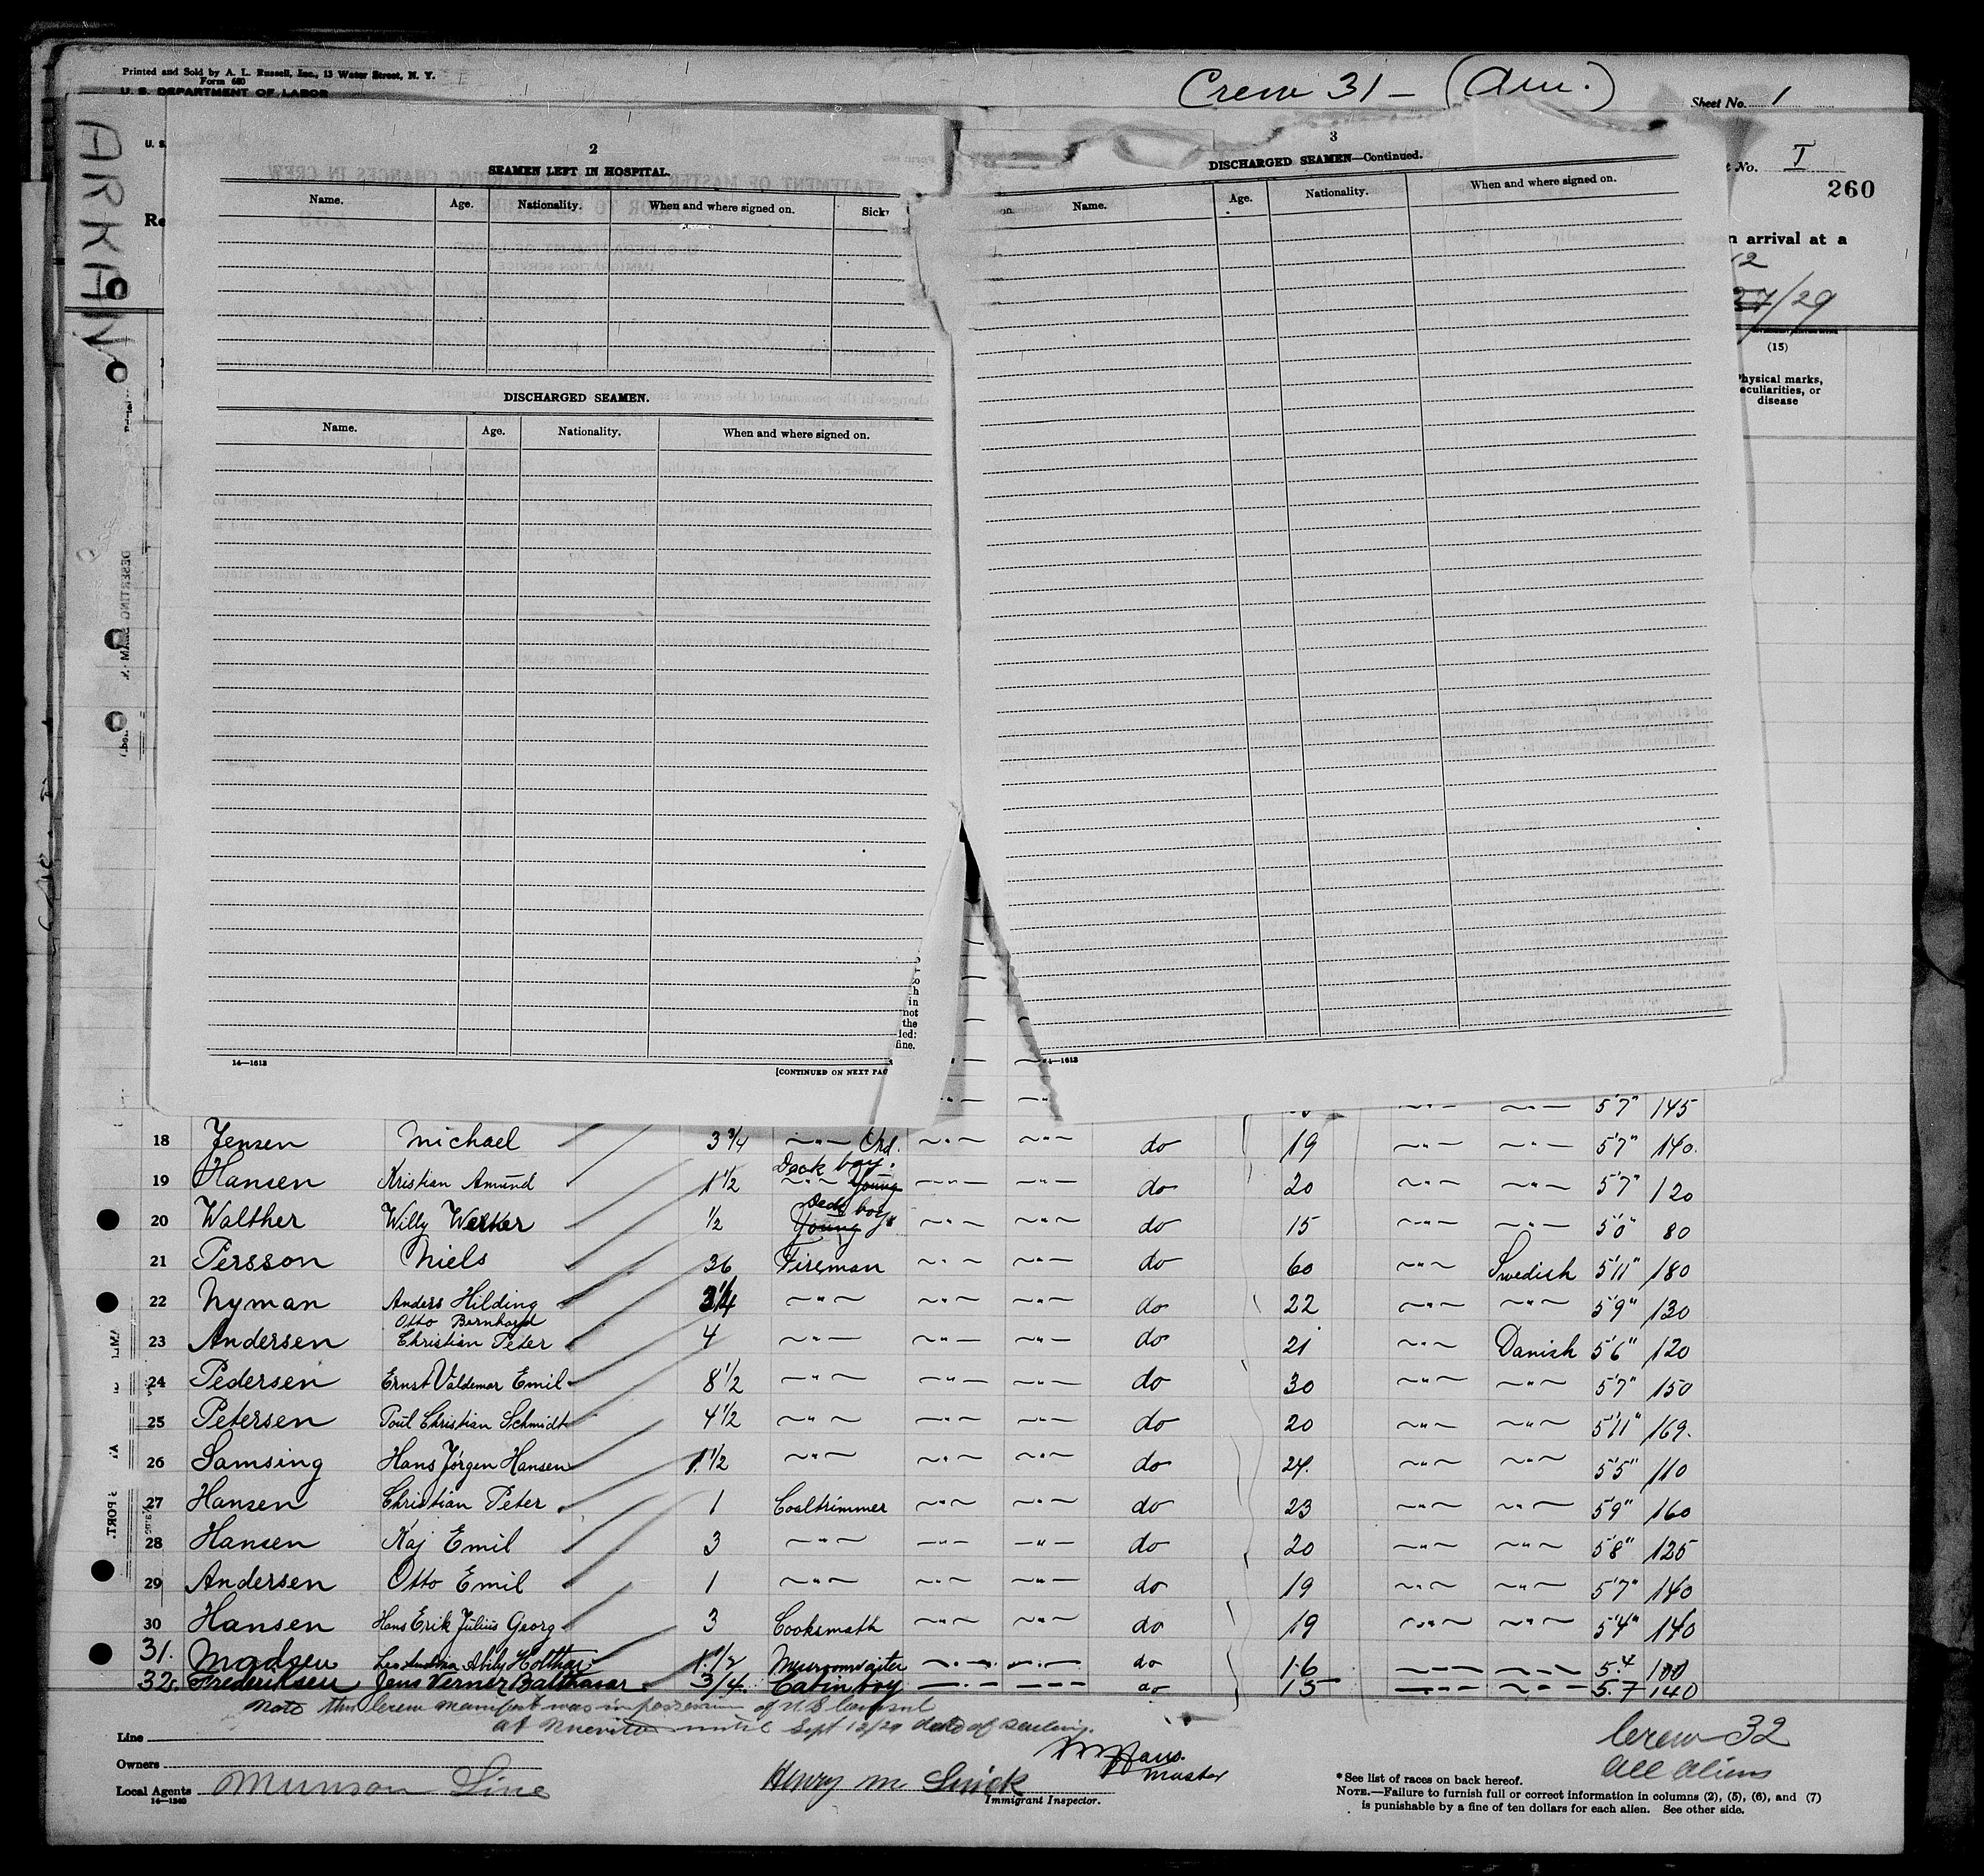 Printed and Sold by A. L. Russell, Inc., 13 Water Street, N. Y.
Form 680
U. S. DEPARTMENT OF LABOR
Crew 31 - (Am.)
Sheet No. 1
ARKAN
U. S.
t No. I
260
Re
n arrival at a
12
27/29
(15)
Physical marks,
peculiarities, or
disease
2
SEAMEN LEFT IN HOSPITAL.
Name. Age. Nationality. When and where signed on. Sick
DISCHARGED SEAMEN.
Name. Age. Nationality. When and where signed on.
14—1613
[CONTINUED ON NEXT PAG
3
DISCHARGED SEAMEN—Continued.
on. Name. Age. Nationality. When and where signed on.
14—1613
to
h
in
not
the
led:
fine.
5'7" 145
18 Jensen Michael 3 3/4 —"— Ord. —"— —"— do 19 —"— —"— 5'7" 140.
Deck boy.
19 Hansen Kristian Amund 1 1/2 —"— Young —"— —"— do 20 —"— —"— 5'7" 120
Deck boy
20 Walther Willy Werner 1/2 Young —"— —"— do 15 —"— —"— 5'0" 80
21 Persson Niels 36 Fireman —"— —"— do 60 —"— Swedish 5'11" 180
22 Nyman Anders Hilding 3/4 —"— —"— —"— do 22 —"— —"— 5'9" 130
Otto Bernhard
23 Andersen Christian Peter 4 —"— —"— —"— do 21 —"— Danish 5'6" 120
24 Pedersen Ernst Valdemar Emil 8 1/2 —"— —"— —"— do 30 —"— —"— 5'7" 150
25 Petersen Poul Christian Schmidt 4 1/2 —"— —"— —"— do 20 —"— —"— 5'11" 169.
26 Samsing Hans Jörgen Hansen 1 1/2 —"— —"— —"— do 24. —"— —"— 5'5" 110
27 Hansen Christian Peter 1 Coaltrimmer —"— —"— do 23 —"— —"— 5'9" 160
28 Hansen Kaj Emil 3 —"— —"— —"— do 20 —"— —"— 5'8" 125
29 Andersen Otto Emil 1 —"— —"— —"— do 19 —"— —"— 5'7" 140
30 Hansen Hans Erik Julius Georg 3 Cooksmath —"— —"— do 19 —"— —"— 5'4" 140
31. Madsen Holthar 1.1/2 Messroomwaiter —"— —"— do 16 —"— —"— 5.4 100
32. Frederiksen Jens Verner Balthasar 3/4 Cabinboy —"— —"— do 15 —"— —"— 5.7 140
Note this crew manifest was in possession of U S Consul
at Nuevitas until Sept 12/29 date of sailing.
Line
Owners
Local Agents Munson Line
14—1240
Master
Henry M
Immigrant Inspector.
Crew 32
All Aliens
* See list of races on back hereof.
NOTE.—Failure to furnish full or correct information in columns (2), (5), (6), and (7)
is punishable by a fine of ten dollars for each alien. See other side.